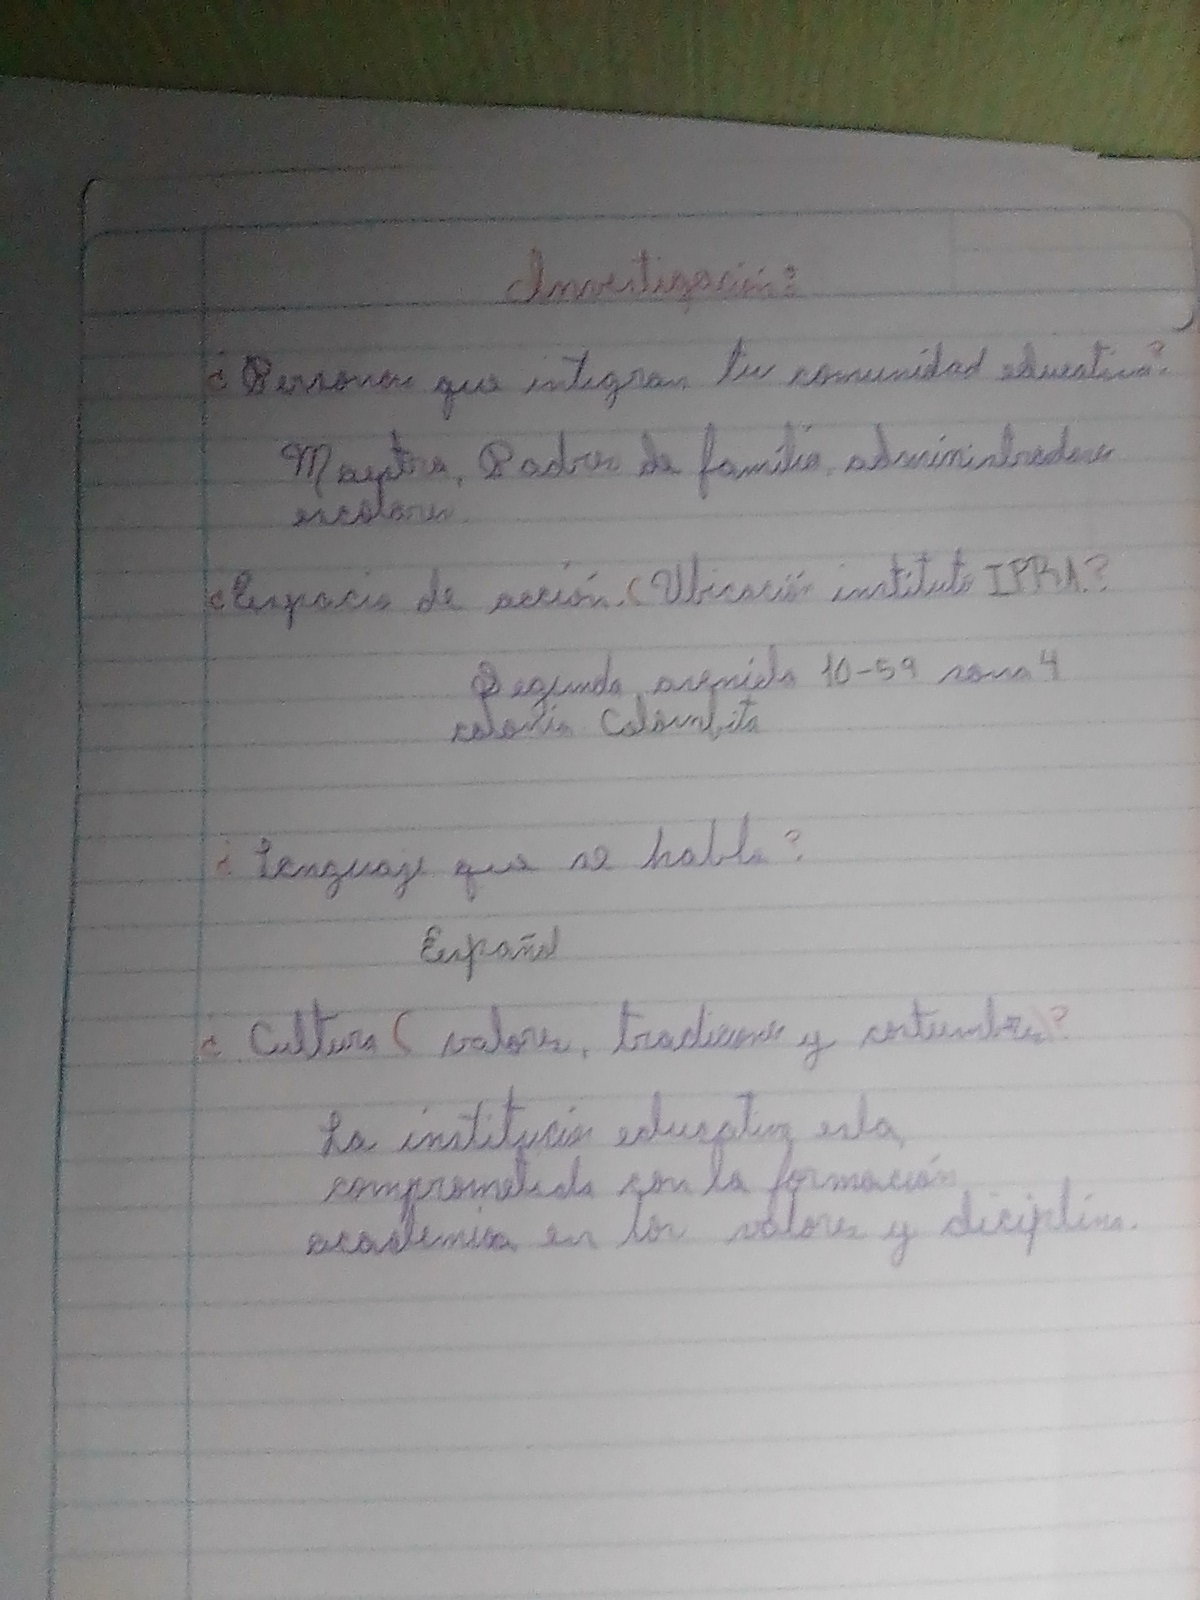 Investigación:
¿Personas que integran tu comunidad educativa?
Maestra, Padres de familia, administradores
escolares.
¿Espacio de acción. (Ubicación instituto IPRA?
Segunda avenida 10-59 zona 4
colonia Colombita
¿Lenguaje que se habla?
Español
¿Cultura (valores, tradiciones y costumbres)?
La institución educativa esta
comprometida con la formación
academica en los valores y diciplina.